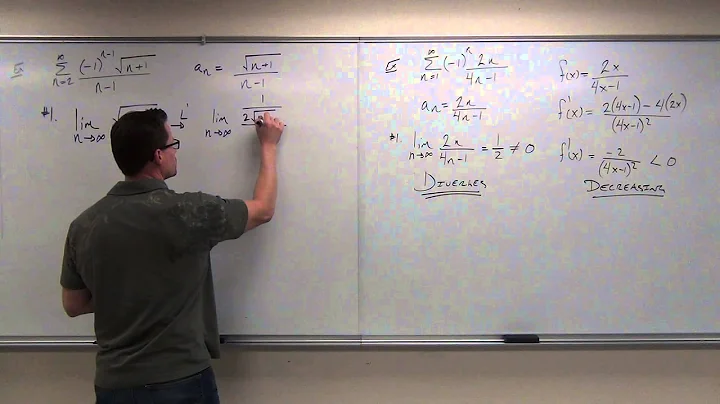 Ex ∞ Σ n=2 (-1)^{n-1} √(n+1) / (n-1)
a_n = √(n+1) / (n-1)
#1. lim n→∞ √ → L'
lim n→∞ 1 / 2√n
Ex ∞ Σ n=1 (-1)^n 2n / (4n-1)
a_n = 2n / (4n-1)
#1. lim n→∞ 2n / (4n-1) = 1/2 ≠ 0
DIVERGES
f(x) = 2x / (4x-1)
f'(x) = 2(4x-1) - 4(2x) / (4x-1)^2
f'(x) = -2 / (4x-1)^2 < 0
DECREASING